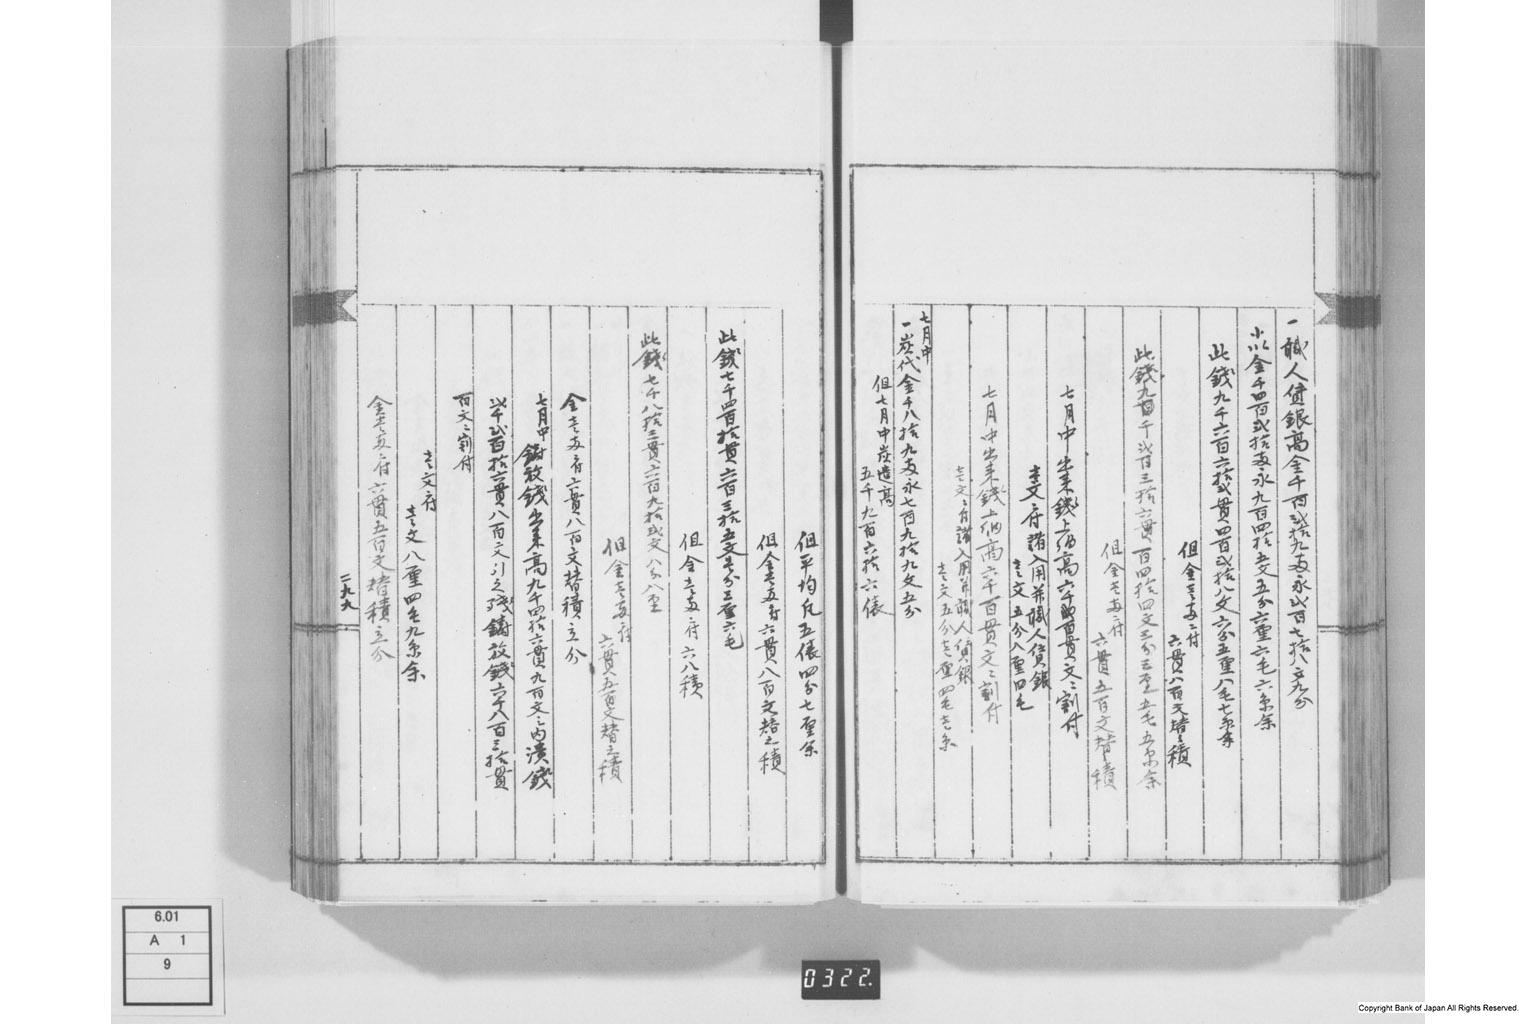 一職人賃銀高金千百弐拾九両永弐百七拾八文九分
小以金千四百弐拾両永九百四拾五文五分六厘六毛六糸余
此錢九千六百六拾弐貫四百弐拾八文六分五厘八毛七糸余
但金壱両ニ付六貫八百文替之積
此錢九千弐百三拾六貫百四拾四文三分三厘五毛五糸余
但金壱両ニ付六貫五百文替ノ積
七月中出来錢上納高六千百貫文ニ割付
壱文ニ付諸入用并職人賃銀
壱文五分八厘四毛
七月中出来錢上納高六千百貫文ニ割付
壱文ニ付諸入用并職人賃銀
壱文五分壱厘四毛壱糸
七月中
一炭代金千八拾九両永七百九拾九文五分
但七月中炭遣高
五千九百六拾六俵
但平均凡五俵四分七厘余
但金壱両ニ付六貫八百文替之積
此錢七千四百拾貫六百三拾五文壱分三厘六毛
但金壱両ニ付六八積
此錢七千八拾三貫六百九拾弐文八分八厘
但金壱両ニ付六貫五百文替之積
金壱両ニ付六貫八百文替積立分
七月中鋳放錢出来高九千四拾六貫九百文之内潰錢
弐千弐百拾六貫八百文引之残鋳放錢六千八百三拾貫
百文ニ割付
壱文ニ付
壱文八厘四毛九糸余
金壱両ニ付六貫五百文替積立分
二九九
6.01
A 1
9
0322.
Copyright Bank of Japan All Rights Reserved.